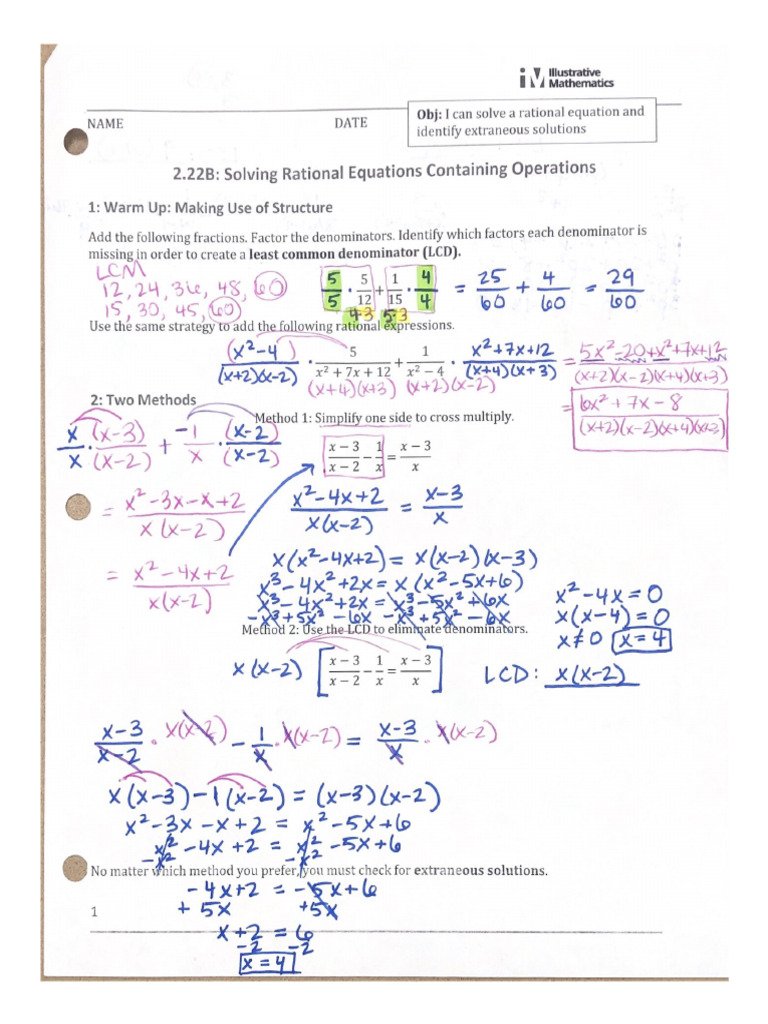 Illustrative
Mathematics
NAME DATE
Obj: I can solve a rational equation and
identify extraneous solutions
2.22B: Solving Rational Equations Containing Operations
1: Warm Up: Making Use of Structure
Add the following fractions. Factor the denominators. Identify which factors each denominator is
missing in order to create a least common denominator (LCD).
LCM
12, 24, 36, 48, 60
15, 30, 45, 60
5/5 · 5/12 + 1/15 · 4/4 = 25/60 + 4/60 = 29/60
4·3 5·3
Use the same strategy to add the following rational expressions.
(x²-4)/(x+2)(x-2) · 5/(x² + 7x + 12) + 1/(x² - 4) · x²+7x+12/(x+4)(x+3) = 5x²-20+x²+7x+12/(x+2)(x-2)(x+4)(x+3)
(x+4)(x+3) (x+2)(x-2)
= 6x²+7x-8/(x+2)(x-2)(x+4)(x+3)
2: Two Methods
Method 1: Simplify one side to cross multiply.
x/x · (x-3)/(x-2) + -1/x · (x-2)/(x-2)
(x-3)/(x-2) - 1/x = (x-3)/x
= x²-3x-x+2/x(x-2)
x²-4x+2/x(x-2) = x-3/x
= x²-4x+2/x(x-2)
x(x²-4x+2) = x(x-2)(x-3)
x³-4x²+2x = x(x²-5x+6)
x³-4x²+2x = x³-5x²+6x
-x³+5x²-6x -x³+5x²-6x
x²-4x=0
x(x-4)=0
x≠0 x=4
Method 2: Use the LCD to eliminate denominators.
x(x-2) [(x-3)/(x-2) - 1/x = (x-3)/x] LCD: x(x-2)
x-3/x-2 · x(x-2) - 1/x · x(x-2) = x-3/x · x(x-2)
x(x-3)-1(x-2) = (x-3)(x-2)
x²-3x-x+2 = x²-5x+6
x²-4x+2 = x²-5x+6
-x² -x²
No matter which method you prefer, you must check for extraneous solutions.
-4x+2 = -5x+6
+5x +5x
1
x+2 = 6
-2 -2
x=4